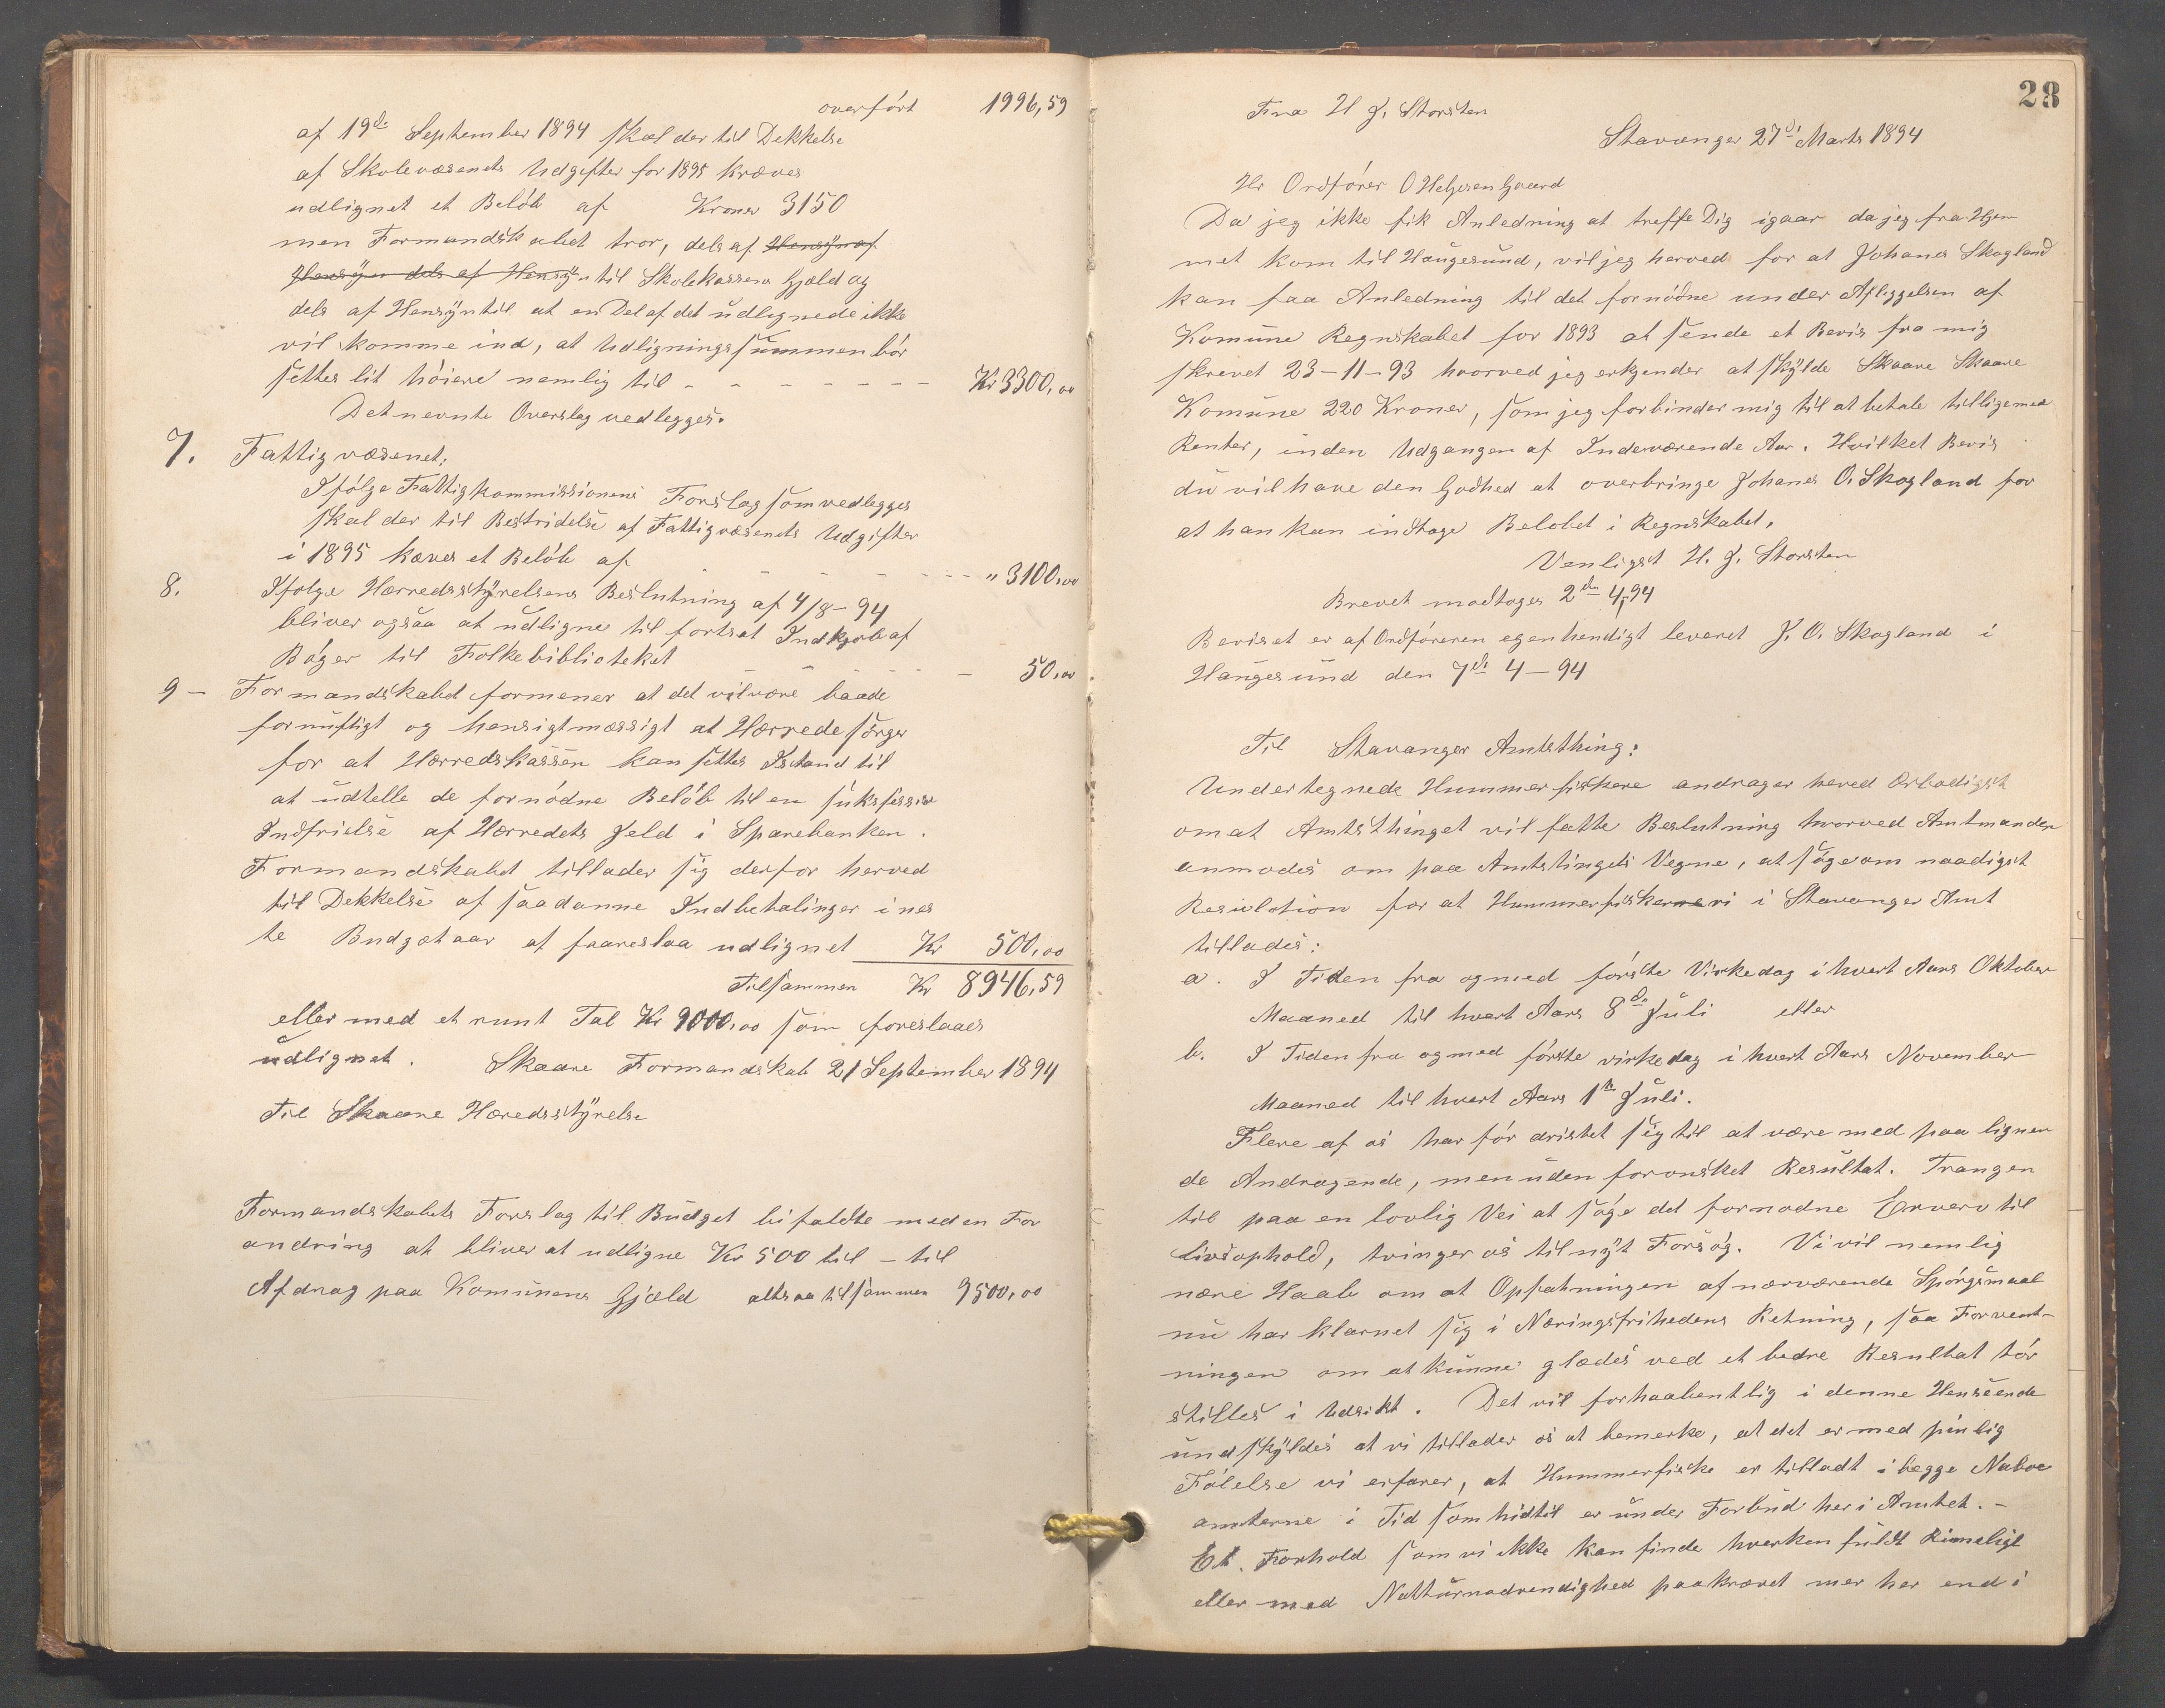 overført 1996,59
af 19de September 1894 skal der til Dekkelse
af Skolevæsenets Udgifter for 1895 kræves
udlignet et Beløb af Kroner 3150
men Formandskabet tror, dels af Hensyn af
Hensyn dels af Hensyn til Skolekassens Gjæld og
dels af Hensyn til at en Del af det udlignede ikke
vil komme ind, at Udligningssummen bør
settes lit høiere nemlig til - - - - - - - Kr 3300,00
Det nevnte Overslag vedlegges.
7. Fattigvæsenet;
Ifølge Fattigkommissionens Forslag som vedlegges
skal der til Bestridelse af Fattigvæsenets Udgifter
i 1895 kæves et Beløb af - - - - - - - " 3100,00
8. Ifølge Hærredsstyrelsens Beslutning af 4/8-94
bliver ogsaa at udligne til fortsat Indkjøb af
Bøger til Folkebiblioteket - - - - - 50,00
9 - Formandskabet formener at det vil være baade
fornuftigt og hensigtmæssigt at Hærrede sørger
for at Hærredskassen kan settes Istand til
at udtelle de fornødne Beløb til en suksessiv
Indfrielse af Hærredets Jeld i Sparebanken.
Formandskabet tillader sig derfor herved
til Dekkelse af saadanne Indbetalinger i nes
te Budgetaar at faareslaa udlignet Kr 500,00
Tilsammen Kr 8946,59
eller med et runt Tal Kr 9000,00 som foreslaaes
udlignet. Skaare Formandskab 21 September 1894
Til Skaare Hæredsstyrelse
Formandskabets Forslag til Budget bifaldte med en For
andring at bliver at udligne Kr 500 til - til
Afdrag paa Komunens Gjæld altsaa tilsammen 9500,00
28
Fra H J. Storsten
Stavanger 27de Marts 1894
Hr Ordfører O Helgesen Gaard
Da jeg ikke fik Anledning at treffe Dig igaar da jeg fra Hjem
met kom til Haugesund, vil jeg herved for at Johanes Skogland
kan faa Anledning til det fornødne under Afleggelsen af
Komune Regnskabet for 1893 at sende et Bevis fra mig
skrevet 23-11-93 hvorved jeg erkjender at skylde Skaare Skaare
Komune 220 Kroner, som jeg forbinder mig til at betale tilligemed
Renter, inden Udgangen af Indeværende Aar. Hvilket Bevis
du vil have den Godhed at overbringe Johanes O. Skogland for
at han kan indtage Belobet i Regnskabet,
Venligst H. J. Storsten
Brevet modtoges 2de 4-94
Beviset er af Ordføreren egenhendigt leveret J. O. Skogland i
Haugesund den 7de 4-94
Til Stavanger Amtsthing:
Undertegnede Hummerfiskere andrager herved Ærbodigst
om at Amtsthinget vil fatte Beslutning hvorved Amtmanden
anmodes om paa Amtstingets Vegne, at søge om naadigst
Resulotion for at Hummerfiskerne ri i Stavanger Amt
tillades:
a. I Tiden fra og med første Virkedag i hvert Aars Oktober
Maaned til hvert Aars 8de Juli eller
b. I Tiden fra og med første virkedag i hvert Aars November
Maaned til hvert Aars 1te Juli.
Flere af os har før dristet sig til at være med paa lignen
de Andragende, men uden foronsket Resultat. Trangen
til paa en lovlig Vei at søge det fornødne Erverv til
Livsophold, tvinger os til nyt Forsøg. Vi vil nemlig
nære Haab om at Oppfatningen af nærværende Spørgsmaal
nu har klarnet sig i Næringsfrihedens Retning, saa Forvent-
ningen om at kunne glædes ved et bedre Resultat tør
stilles i Udsikt. Det vil forhaabentlig i denne Henseende
undskyldes at vi tillader os at bemerke, at det er med pinlig
Følelse vi erfarer, at Hummerfiske er tilladt i begge Naboe
amterne i Tid som hidtil er under Forbud her i Amtet. -
Et Forhold som vi ikke kan finde hverken fuldt Rimeligt
eller med Natturnødvendighed paakrævet mer her end i